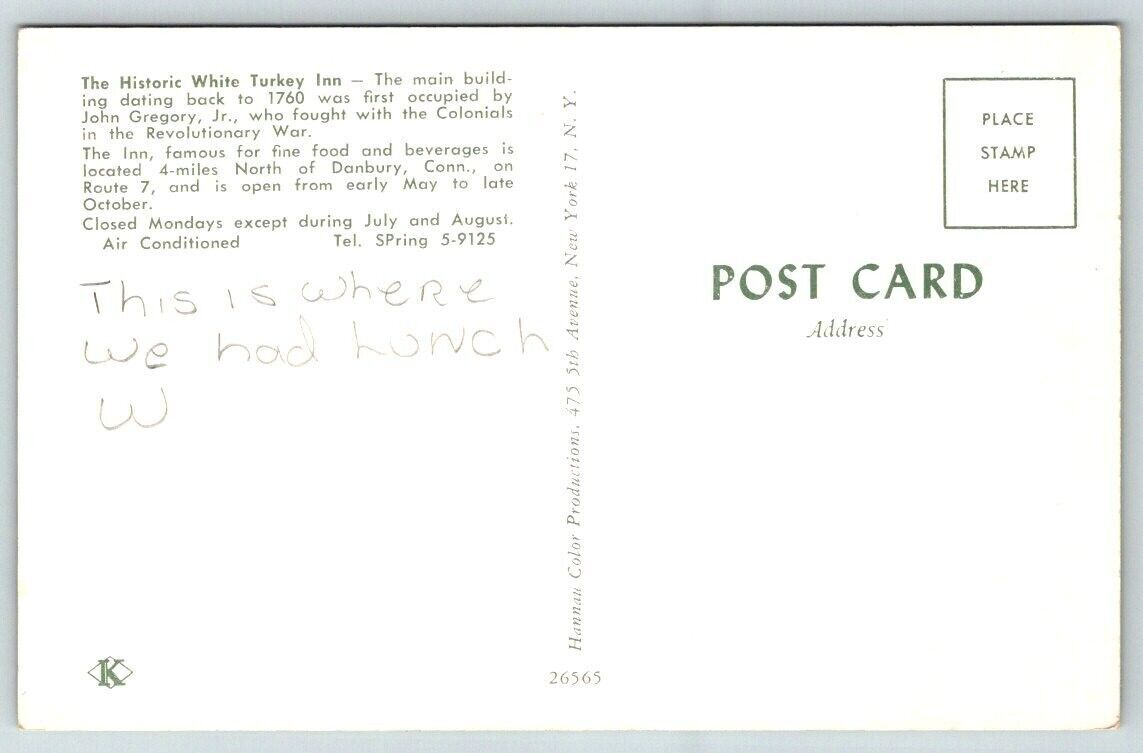 The Historic White Turkey Inn — The main build-
ing dating back to 1760 was first occupied by
John Gregory, Jr., who fought with the Colonials
in the Revolutionary War.
The Inn, famous for fine food and beverages is
located 4-miles North of Danbury, Conn., on
Route 7, and is open from early May to late
October.
Closed Mondays except during July and August.
Air Conditioned Tel. SPring 5-9125
This is where
we had Lunch
W
K
Hannau Color Productions, 475 5th Avenue, New York 17, N. Y.
26565
PLACE
STAMP
HERE
POST CARD
Address